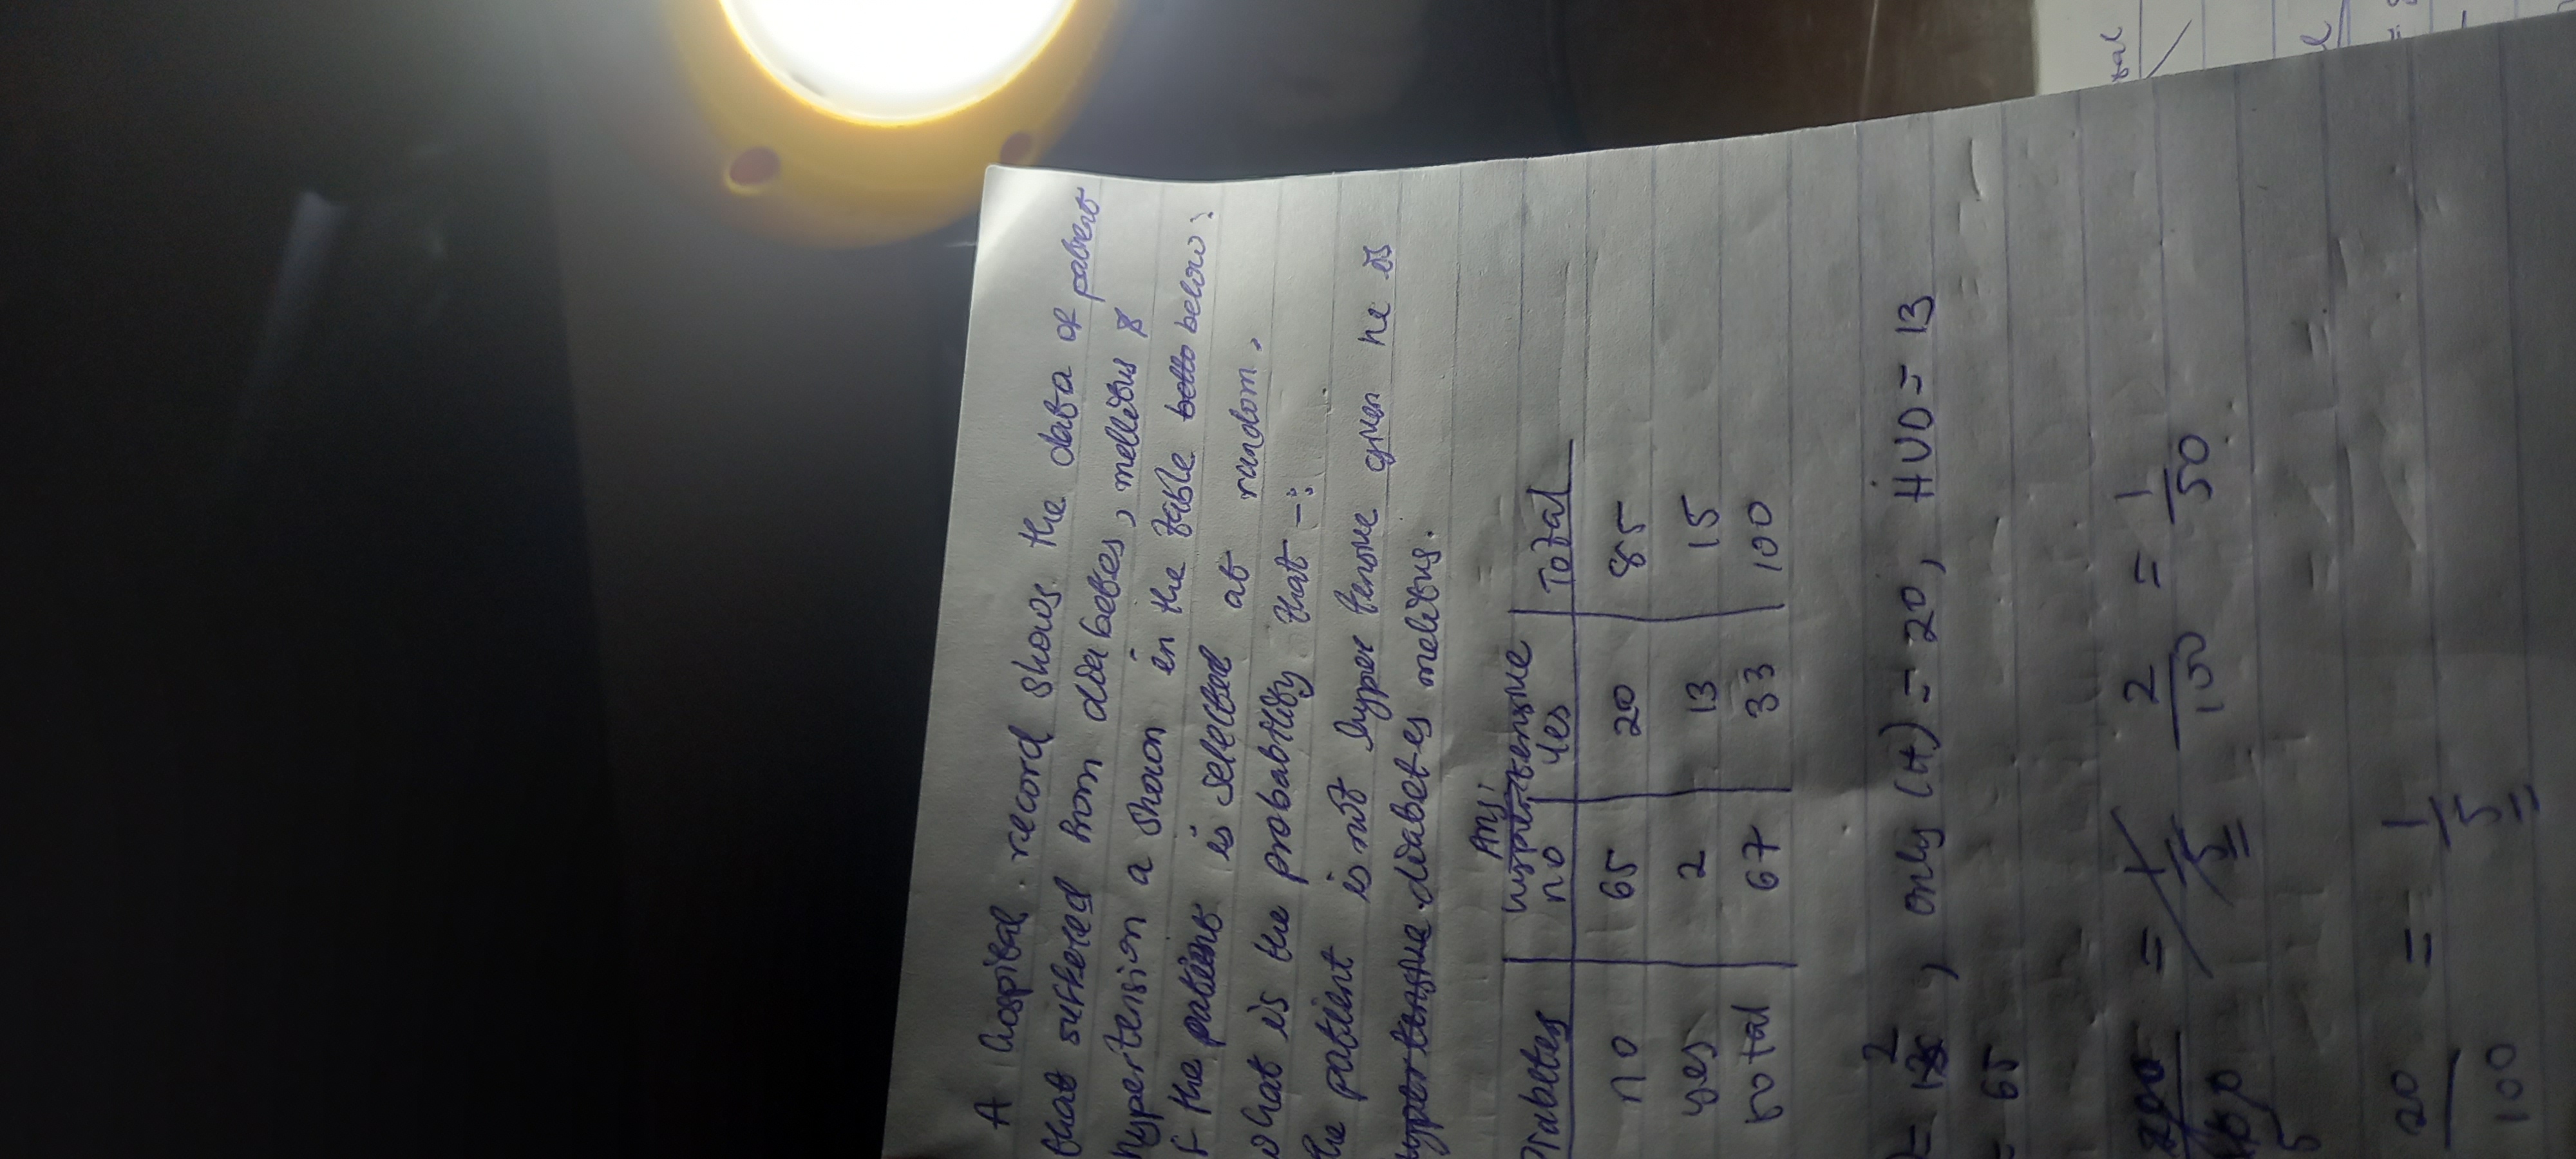 A hospital. record shows. the data of patient
that suffered from diabetes, mellitus &
hypertension a shown in the table below:
f the patient is selected at random.
what is the probability that -:
he patient is not hyper tensive given he is
hypertensive. diabetes melitus.
Ans:
hypertensive
Diabetes no yes Total
no 65 20 85
yes 2 13 15
total 67 33 100
2
= , only (H) = 20, HUD = 13
= 65
200 = 1/5 2/100 = 1/50
5
20/100 = 1/5